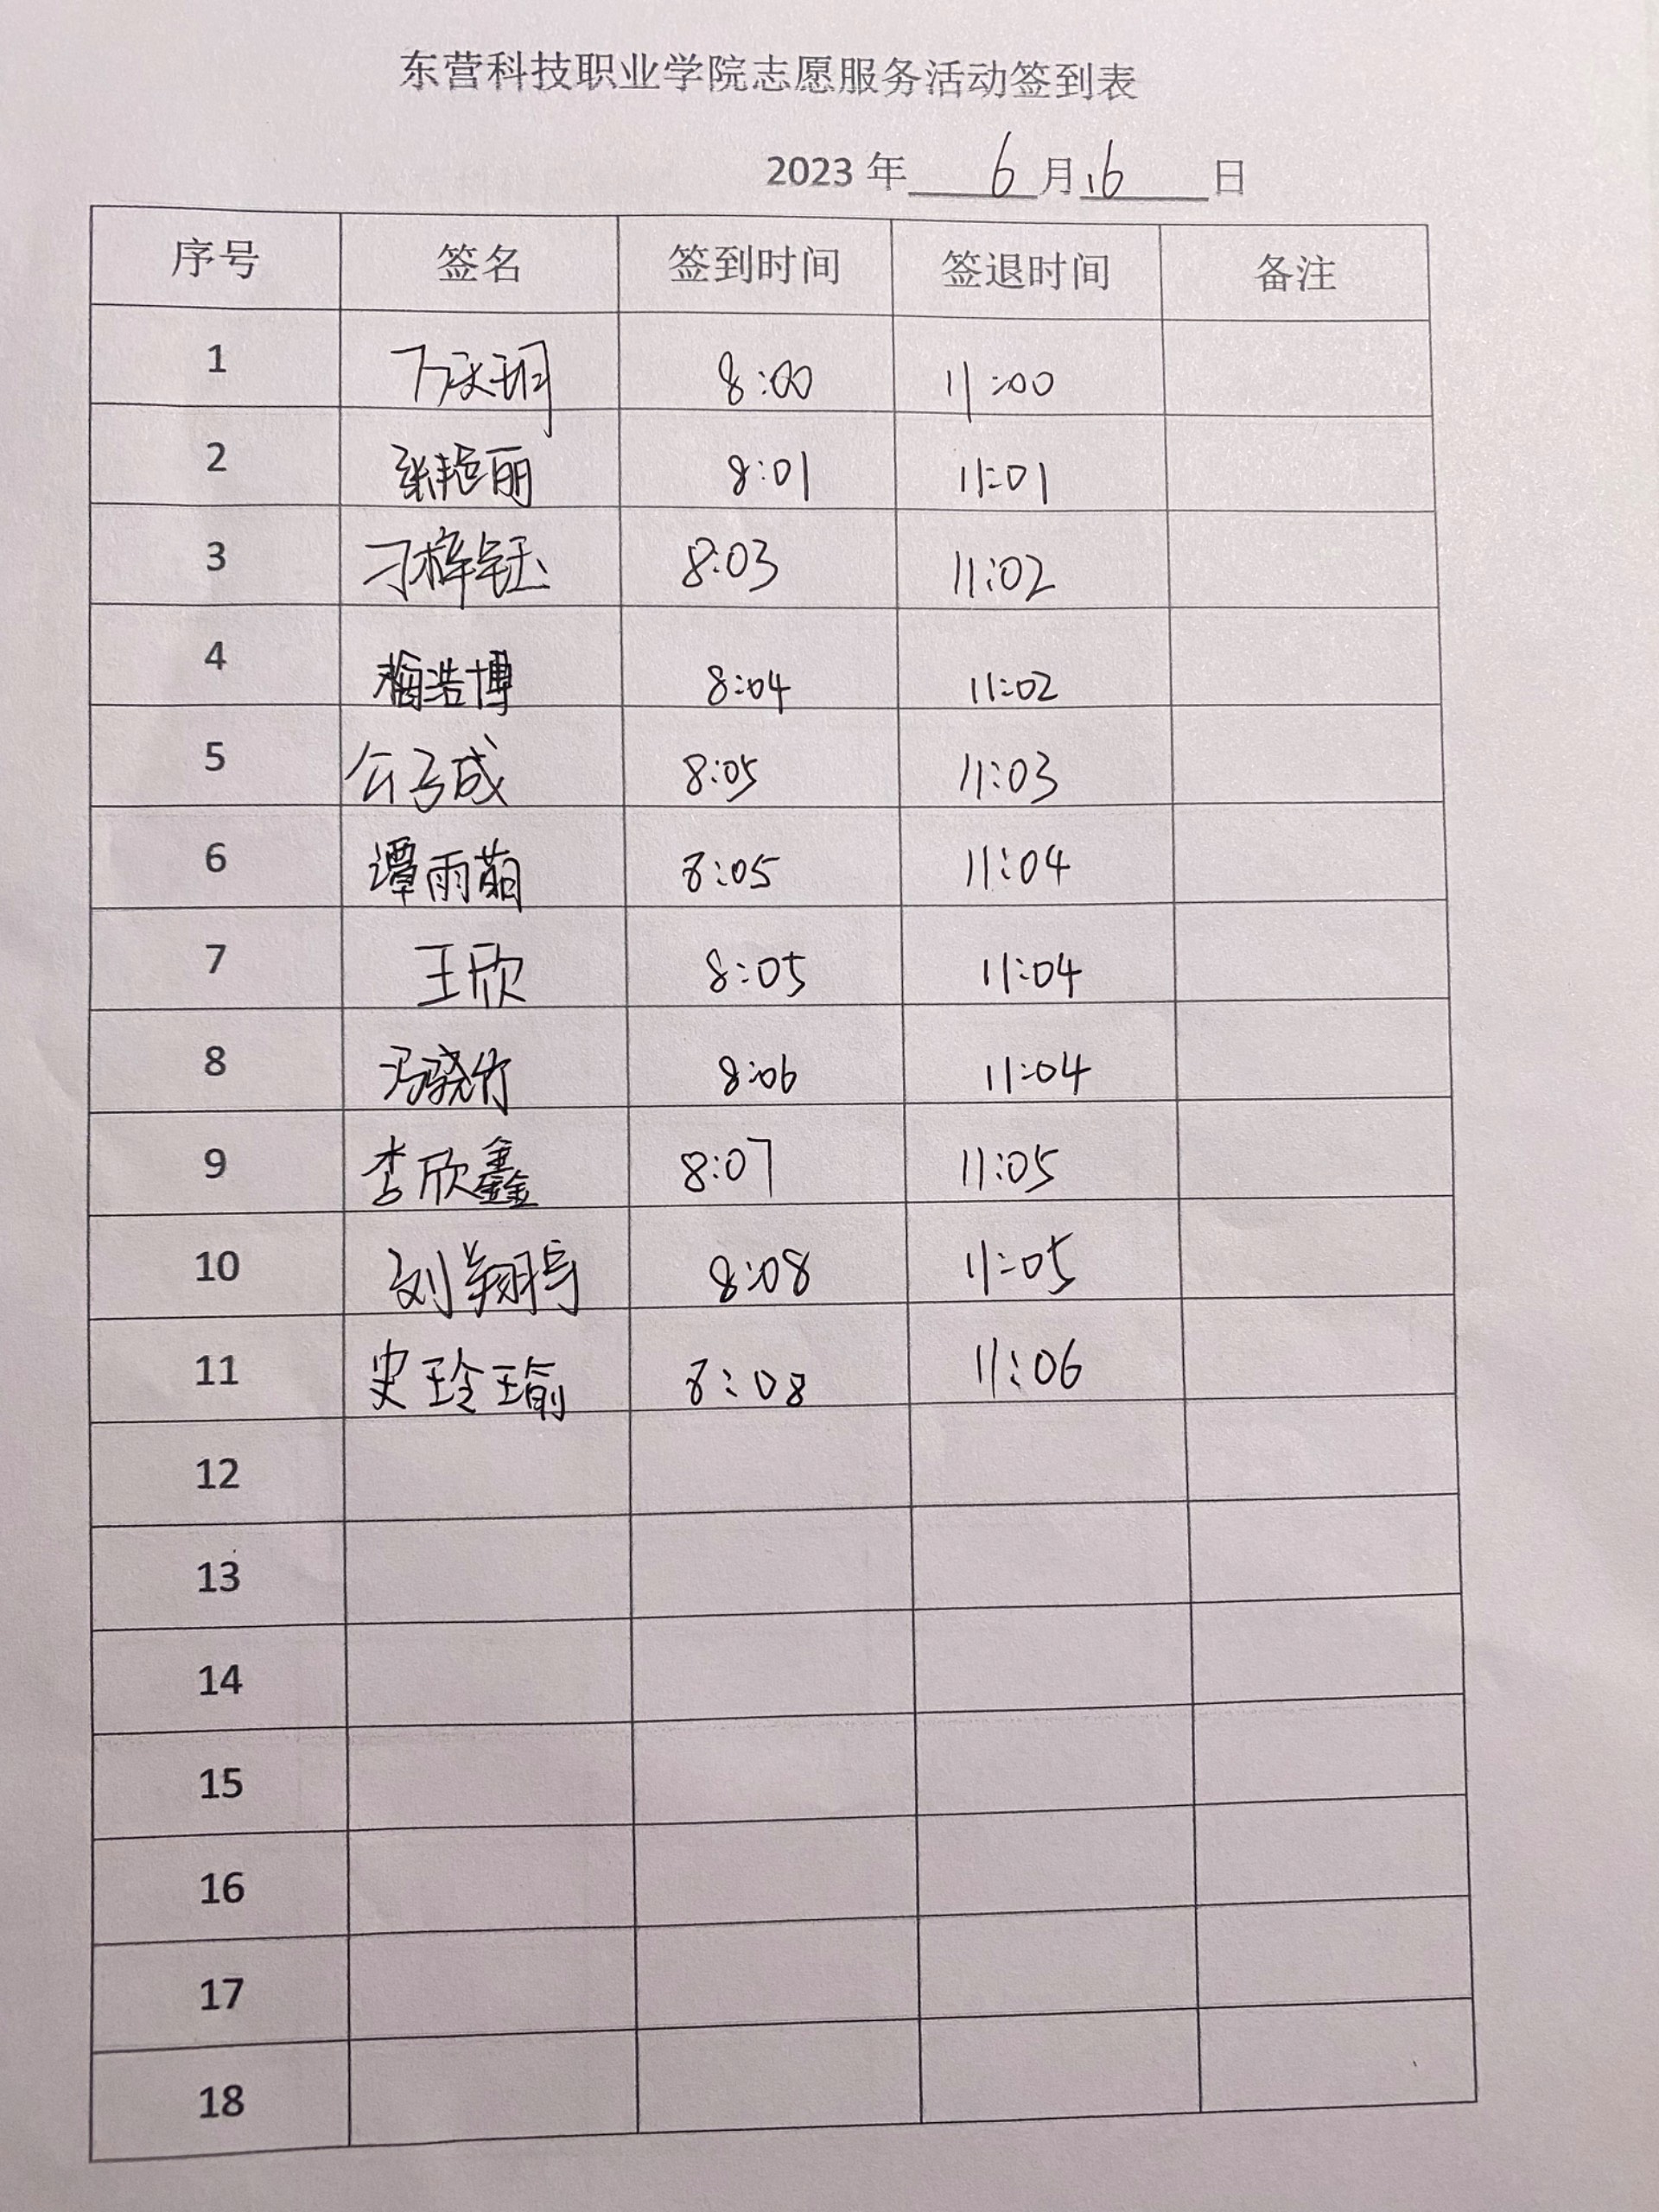 东营科技职业学院志愿服务活动签到表
2023 年 6 月 16 日
序号 签名 签到时间 签退时间 备注
1 8:00 11:00
2 张艳丽 8:01 11:01
3 刁梓钰 8:03 11:02
4 梅浩博 8:04 11:02
5 公子成 8:05 11:03
6 谭雨萌 8:05 11:04
7 王欣 8:05 11:04
8 冯骁竹 8:06 11:04
9 李欣鑫 8:07 11:05
10 刘翔宇 8:08 11:05
11 史玲瑜 8:08 11:06
12
13
14
15
16
17
18